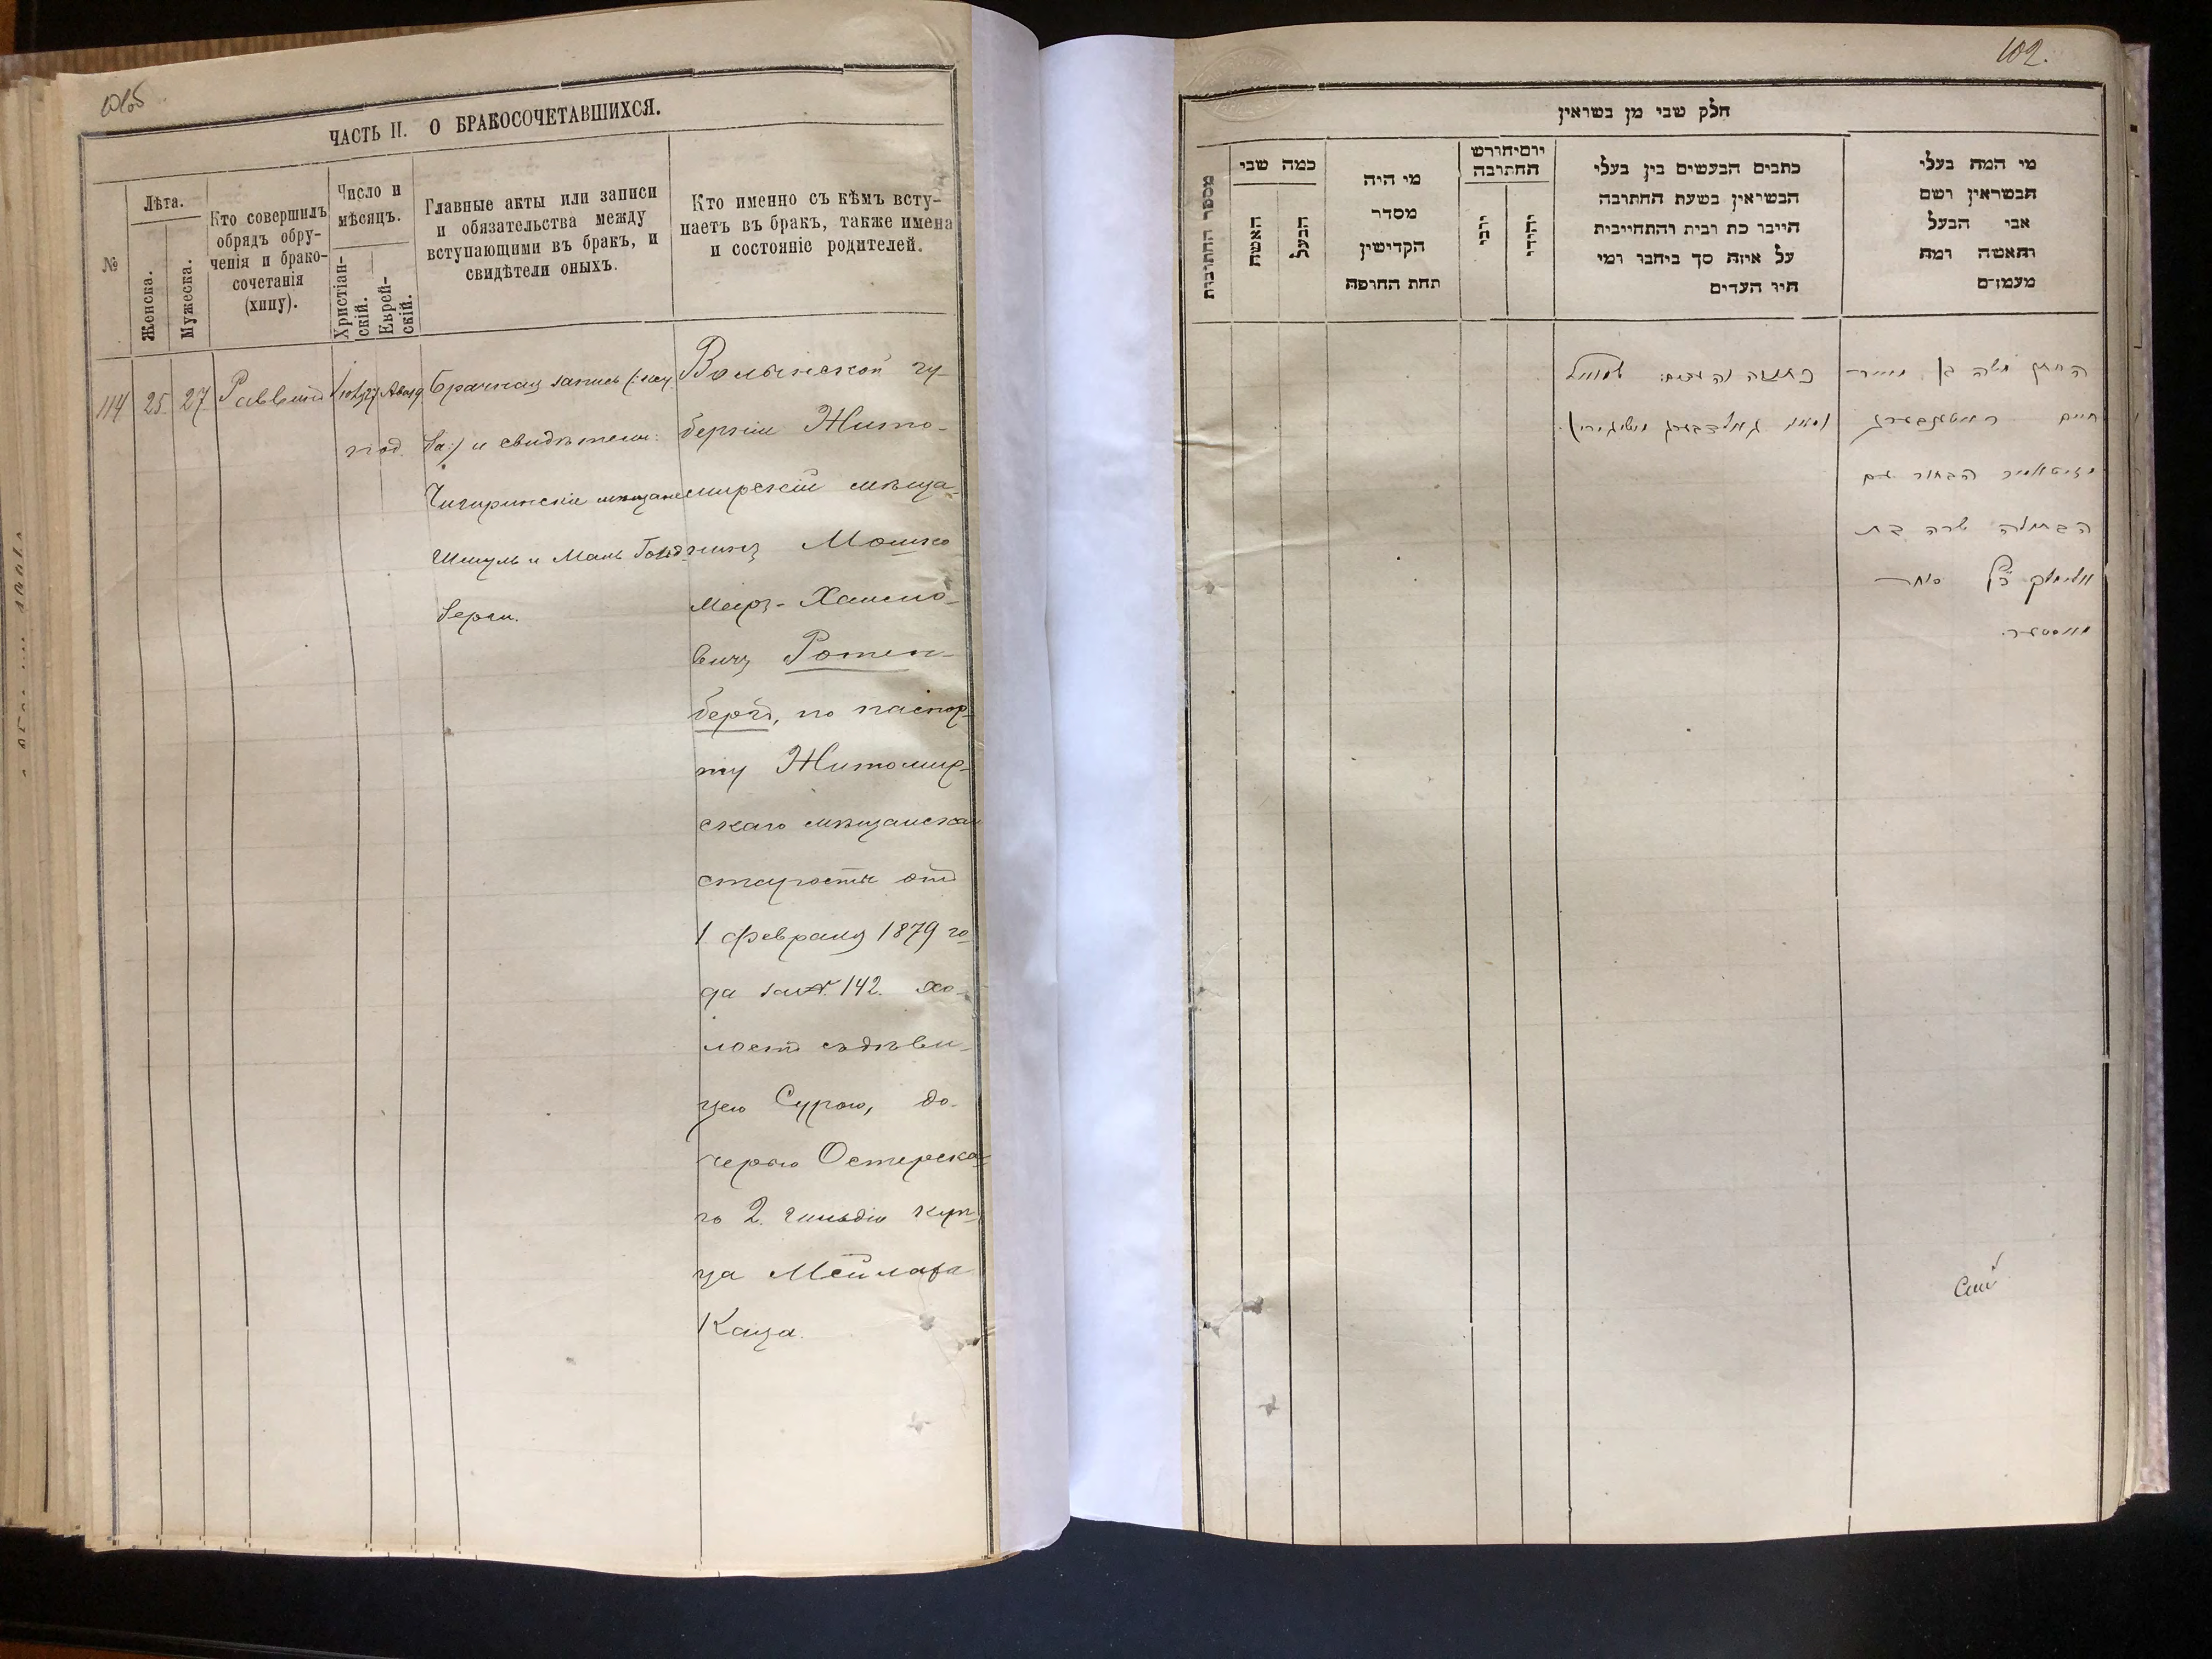 ЧАСТЬ II. О БРАКОСОЧЕТАВШИХСЯ.
№
Лѣта.
Женска.
Мужеска.
Кто совершилъ
обрядъ обру-
ченія и брако-
сочетанія
(хипу).
Число и
мѣсяцъ.
Христіан-
скій.
Еврей-
скій.
Главные акты или записи
и обязательства между
вступающими въ бракъ, и
свидѣтели оныхъ.
Кто именно съ кѣмъ всту-
паетъ въ бракъ, также имена
и состояніе родителей.
114
25
27
Раввинъ
27
19
Брачная запись (:ксу
ба:) и свидѣтели:
Чигиринскіе мѣщане
Шмуль и Мань Гольд
берги.
Волынской гу-
берніи Жито-
мирскій мѣща-
нинъ Мошко
Меръ-Хаимо-
вичъ Ротен-
бергъ, по паспор-
ту Житомир-
скаго мѣщанскаго
старосты отъ
1 февраля 1879 го-
да за № 142. хо-
лостъ съ дѣви-
цею Сурою, до-
черью Остерска-
го 2. гильдіи куп-
ца Мейлаха
Каца.
102.
חלק שבי מן בשראין
מספר החתובות
כמה שבי
האשה
הבעל
מי היה
מסדר
הקדישין
תחת החופה
יוםיחורש
החתובה
יוני
יהודי
כתבים הבעשים בין בעלי
הבשיאין בשעת החתובה
הייבו כת ובית והתחייבית
על איזה סך ביחבו ומי
היו העדים
מי המה בעלי
הבשראין ושם
אבי הבעל
והאשה ומה
מעמדם
החתן משה בן מאיר
חיים ראטענבערג
הבחור עם
הבתולה שרה בת